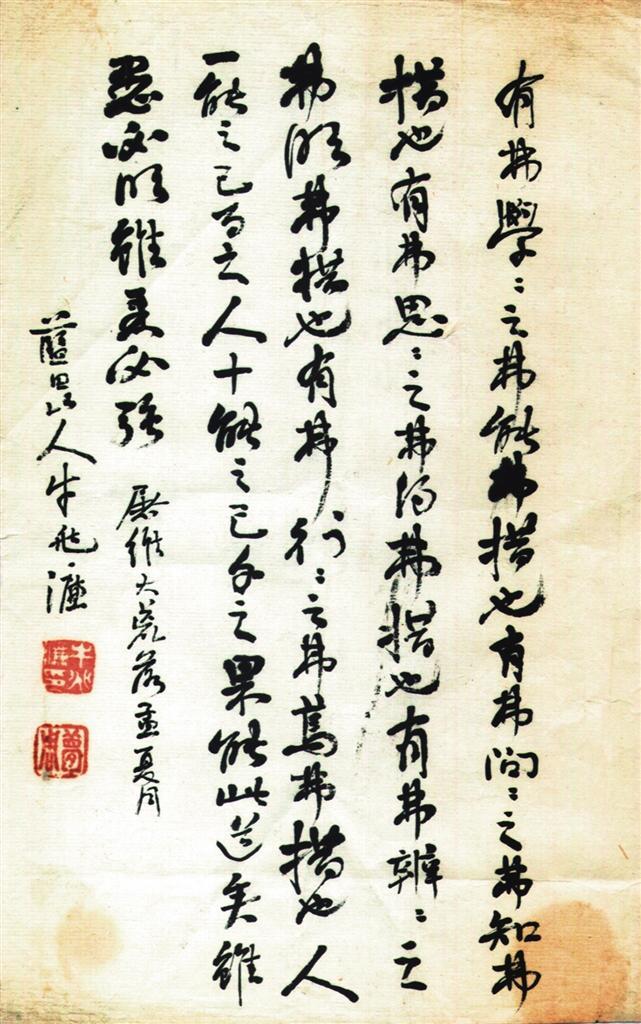 有弗學〻之弗能弗措也有弗問〻之弗知弗
措也有弗思〻之弗得弗措也有弗辨〻之
弗明弗措也有弗行〻之弗篤弗措也人
一能之己百之人十能之己千之果能此道矣雖
愚必明雖柔必強
屠維大荒落孟夏月
藍田山人牛兆濂